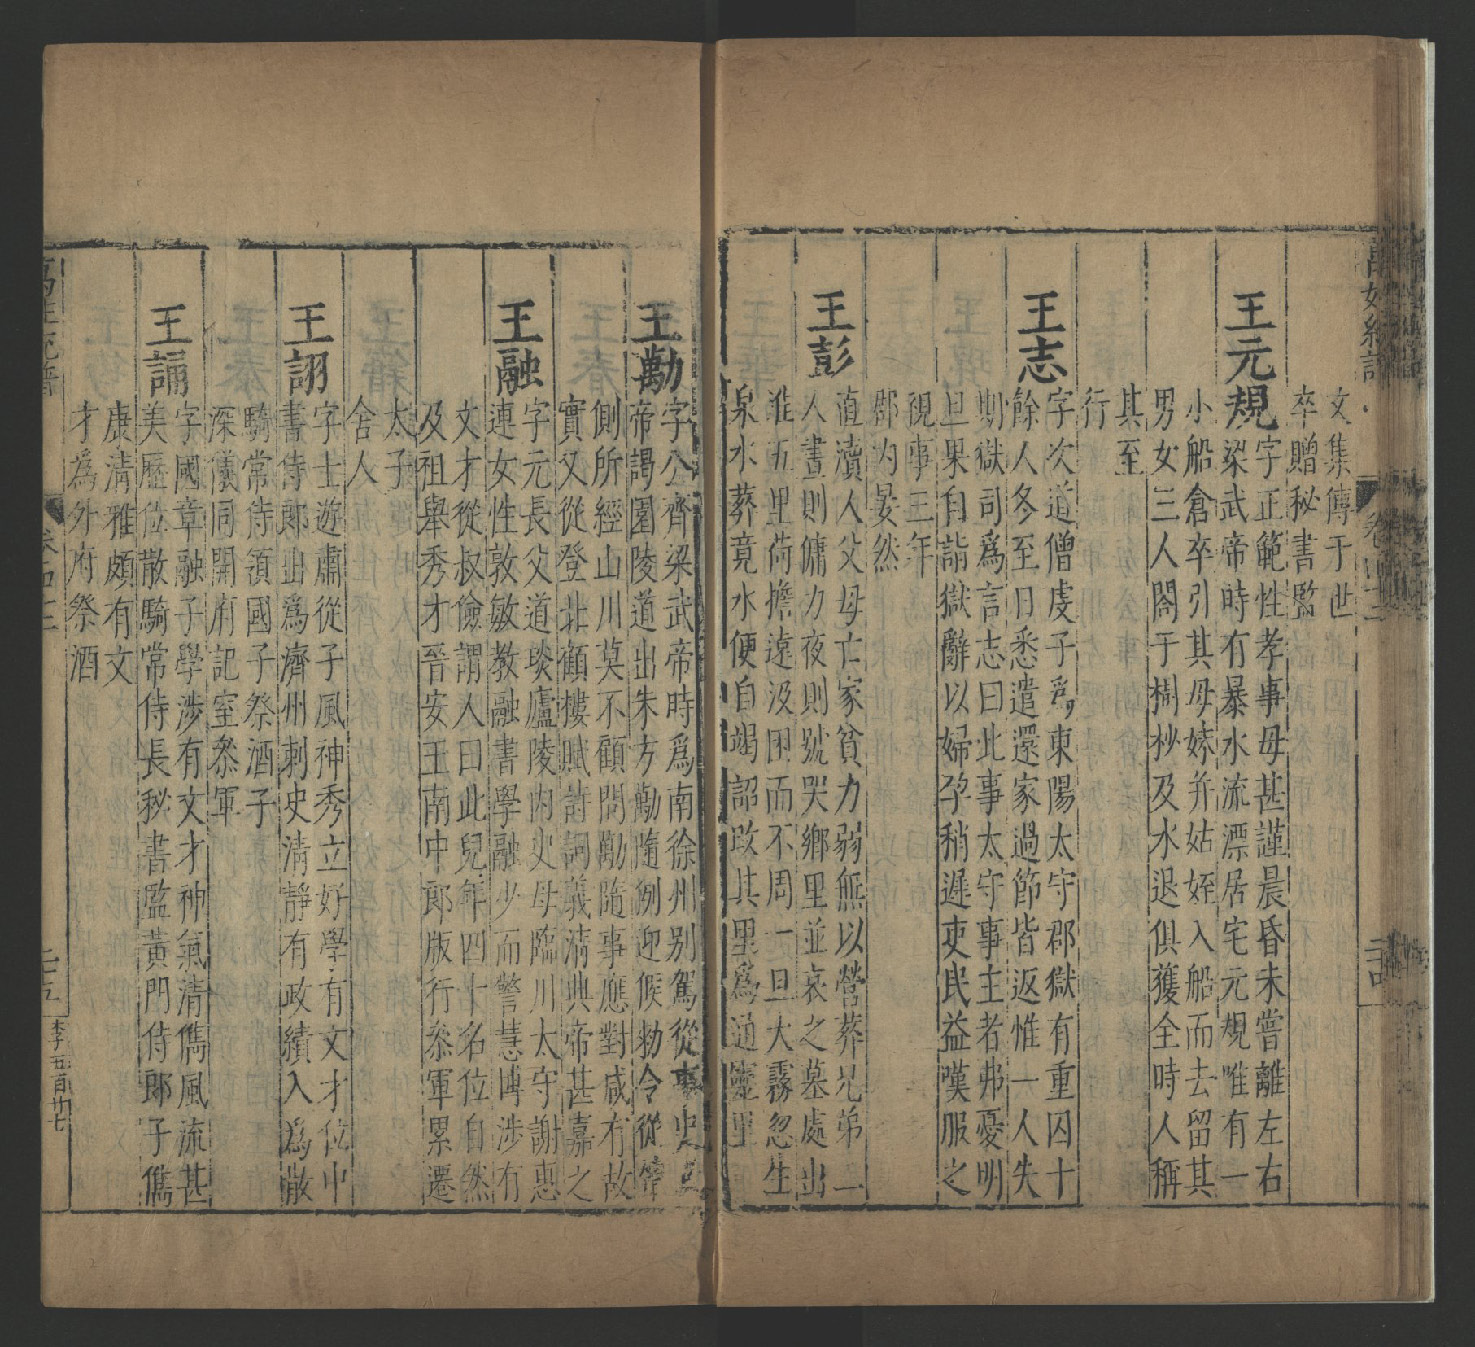 萬姓統譜 卷四十三 二十四
文集傳于世
卒贈秘書監
王元規
字正範性孝事母甚謹晨昏未嘗離左右
梁武帝時有暴水流漂居宅元規唯有一
小船倉卒引其母嫁并姑姪入船而去留其
男女三人閣于樹杪及水退俱獲全時人稱
其至
行
王志
字次道僧虔子爲東陽太守郡獄有重囚十
餘人冬至日悉遣還家過節皆返惟一人失
則獄司爲言志曰此事太守事主者弗憂明
旦果自詣獄辭以婦孕稍遲吏民益嘆服之
視事三年
郡內晏然
王彭
直瀆人父母亡家貧力弱無以營葬兄弟二
人晝則傭力夜則號哭鄉里並哀之墓處出
淮五里荷擔遠汲困而不周一旦大霧忽生
泉水葬竟水便自竭詔改其里爲通靈里
王勱
字公齊梁武帝時爲南徐州别駕從事史
帝謁園陵道出朱方勱隨例迎候勑令從輦
側所經山川莫不顧問勱隨事應對咸有故
實又從登北顧樓賦詩詞義清典帝甚嘉之
王融
字元長父道琰廬陵內史母臨川太守謝惠
連女性敦敏教融書學融少而警慧博涉有
文才從叔儉謂人曰此兒年四十名位自然
及祖舉秀才晉安王南中郎版行叅軍累遷
太子
舍人
王詡
字士遊肅從子風神秀立好學有文才位中
書侍郎出爲濟州刺史清靜有政績入爲散
騎常侍領國子祭酒子
深儀同開府記室叅軍
王誦
字國章融子學涉有文才神氣清儁風流甚
美歷位散騎常侍長秘書監黃門侍郎子儁
康清雅頗有文
才爲外府祭酒
萬姓統譜 卷四十三 二十五 李五百廿七